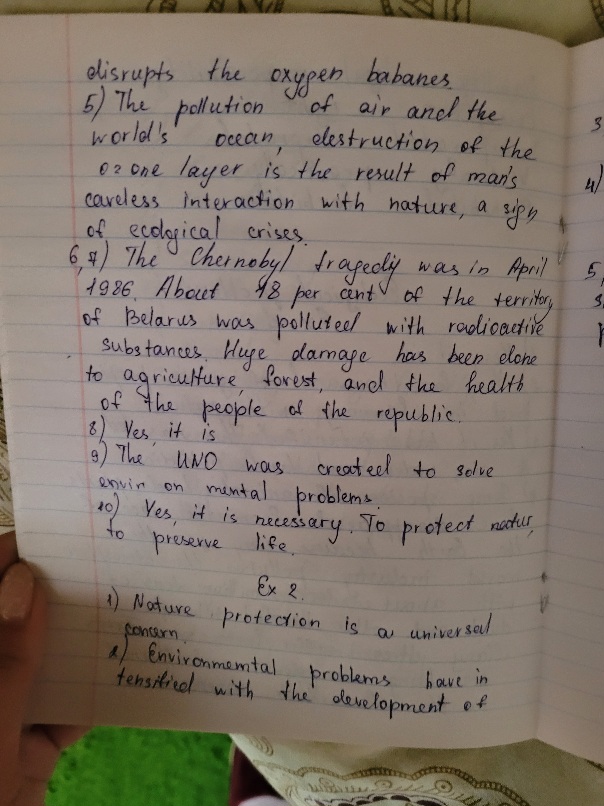 disrupts the oxygen babanes.
5) The pollution of air and the
world's ocean, destruction of the
ozone layer is the result of man's
careless interaction with nature, a sign
of ecological crises.
6,7) The Chernobyl tragediy was in April
1986. About 18 per cent of the territory
of Belarus was polluted with radioactive
substances. Huge damage has been done
to agriculture, forest, and the health
of the people of the republic.
8) Yes, it is
9) The UNO was created to solve
envir on mental problems.
10) Yes, it is necessary. To protect natur,
to preserve life.
Ex 2.
1) Nature protection is a universal
concern.
2) Environmemtal problems have in
tensified with the development of
3
4)
5,